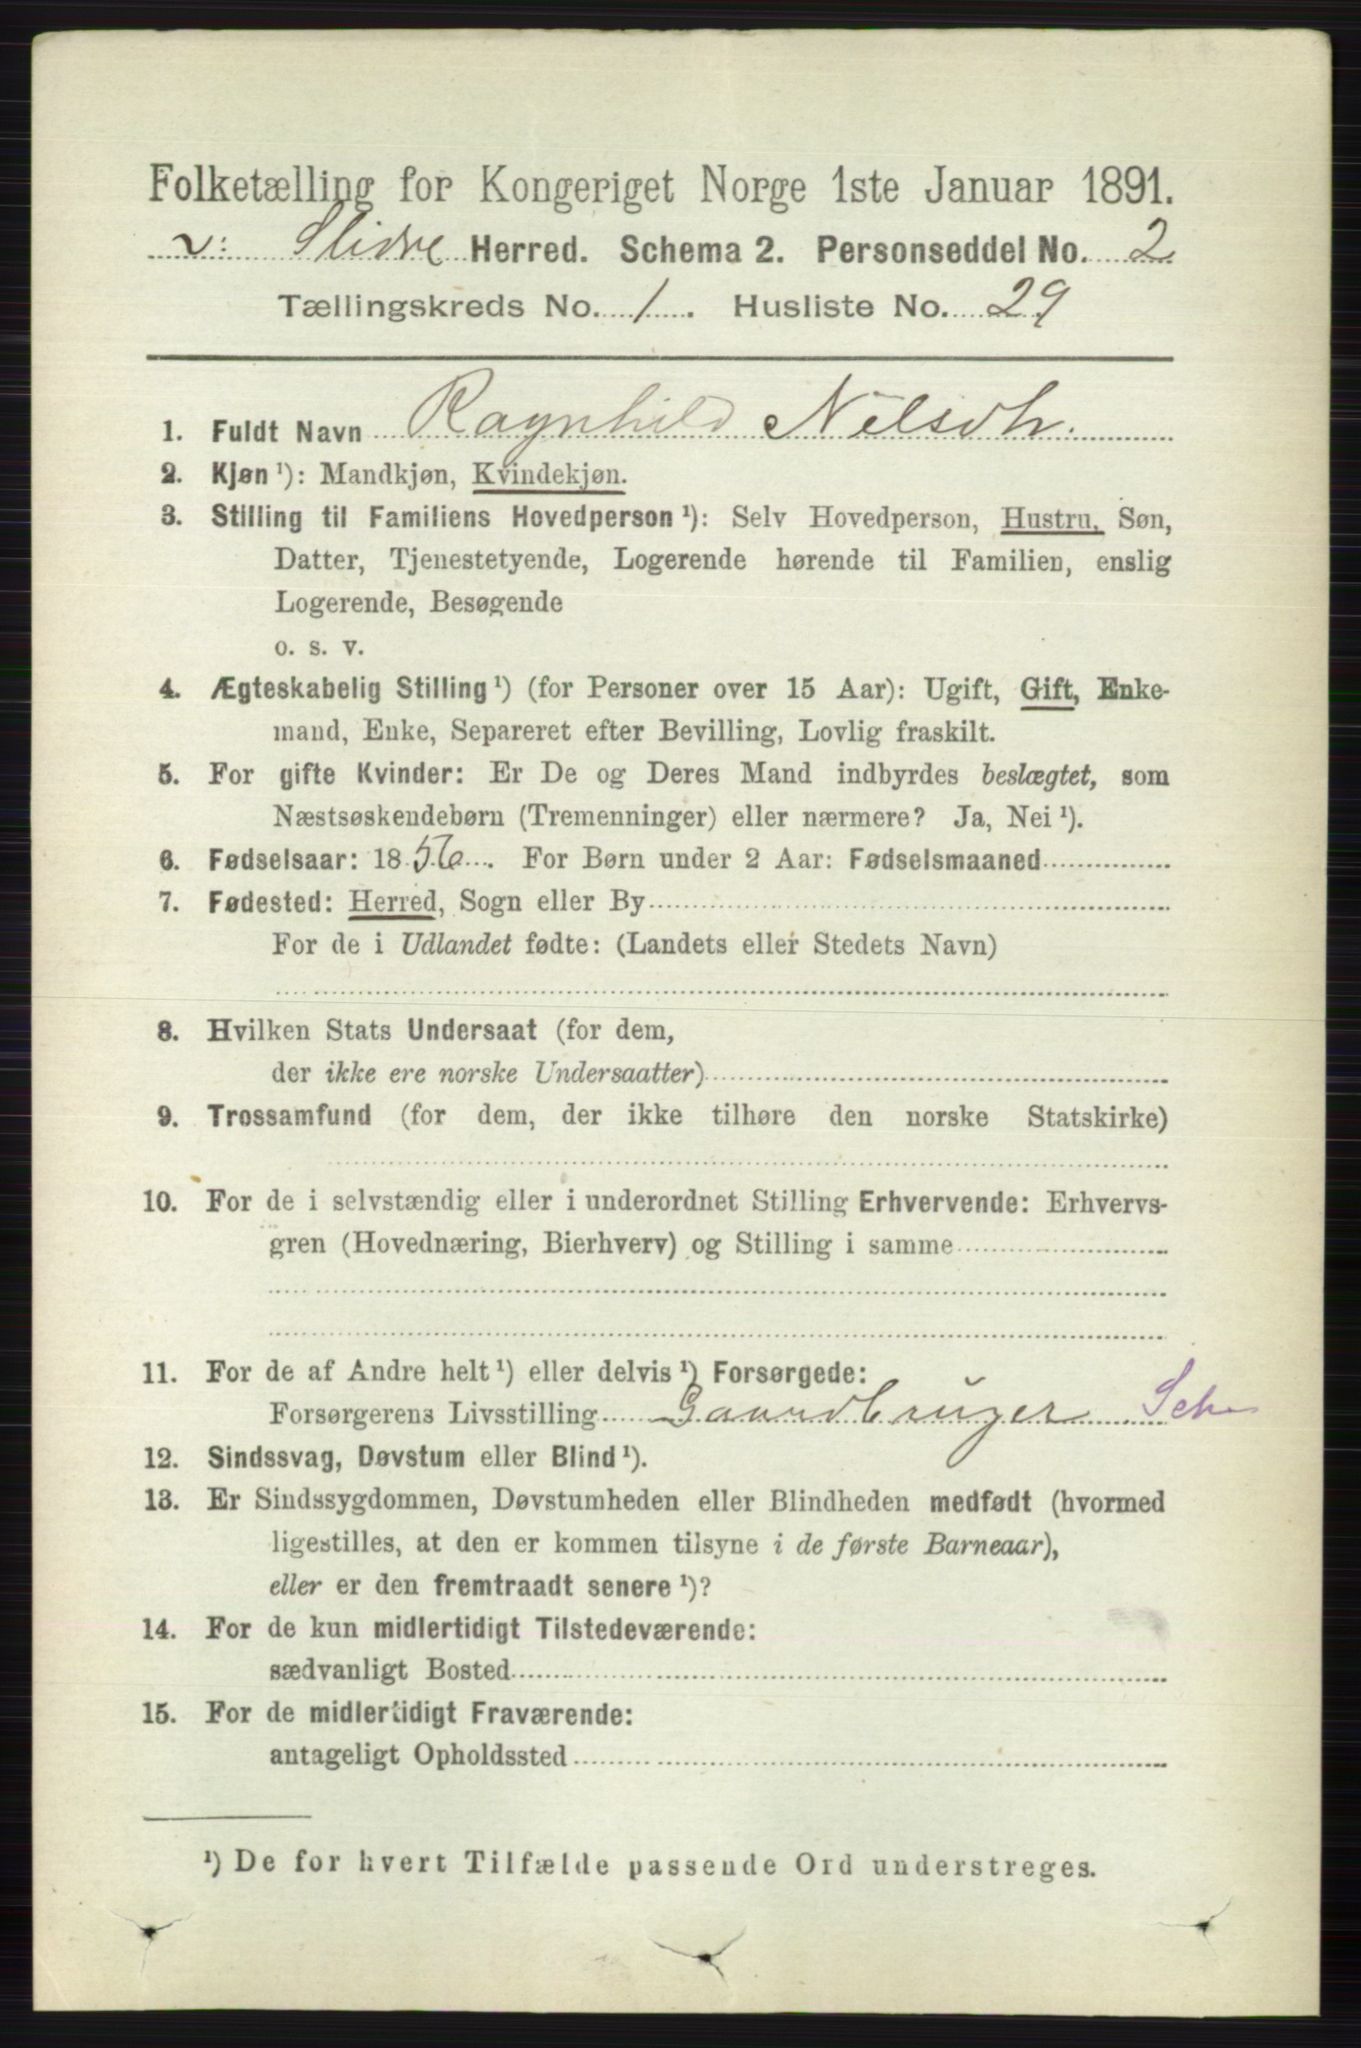 Folketælling for Kongeriget Norge 1ste Januar 1891.
V: Slidre Herred. Schema 2. Personseddel No. 2
Tællingskreds No. 1. Husliste No. 29
1. Fuldt Navn Ragnhild Nilsdtr.
2. Kjøn ¹): Mandkjøn, Kvindekjøn.
3. Stilling til Familiens Hovedperson ¹): Selv Hovedperson, Hustru, Søn,
Datter, Tjenestetyende, Logerende hørende til Familien, enslig
Logerende, Besøgende
o. s. v.
4. Ægteskabelig Stilling ¹) (for Personer over 15 Aar): Ugift, Gift, Enke-
mand, Enke, Separeret efter Bevilling, Lovlig fraskilt.
5. For gifte Kvinder: Er De og Deres Mand indbyrdes beslægtet, som
Næstsøskendebørn (Tremenninger) eller nærmere? Ja, Nei ¹).
6. Fødselsaar: 1856. For Børn under 2 Aar: Fødselsmaaned
7. Fødested: Herred, Sogn eller By
For de i Udlandet fødte: (Landets eller Stedets Navn)
8. Hvilken Stats Undersaat (for dem,
der ikke ere norske Undersaatter)
9. Trossamfund (for dem, der ikke tilhøre den norske Statskirke)
10. For de i selvstændig eller i underordnet Stilling Erhvervende: Erhvervs-
gren (Hovednæring, Bierhverv) og Stilling i samme
11. For de af Andre helt ¹) eller delvis ¹) Forsørgede:
Forsørgerens Livsstilling Gaardbruger Sch
12. Sindssvag, Døvstum eller Blind ¹).
13. Er Sindssygdommen, Døvstumheden eller Blindheden medfødt (hvormed
ligestilles, at den er kommen tilsyne i de første Barneaar),
eller er den fremtraadt senere ¹)?
14. For de kun midlertidigt Tilstedeværende:
sædvanligt Bosted
15. For de midlertidigt Fraværende:
antageligt Opholdssted
¹) De for hvert Tilfælde passende Ord understreges.